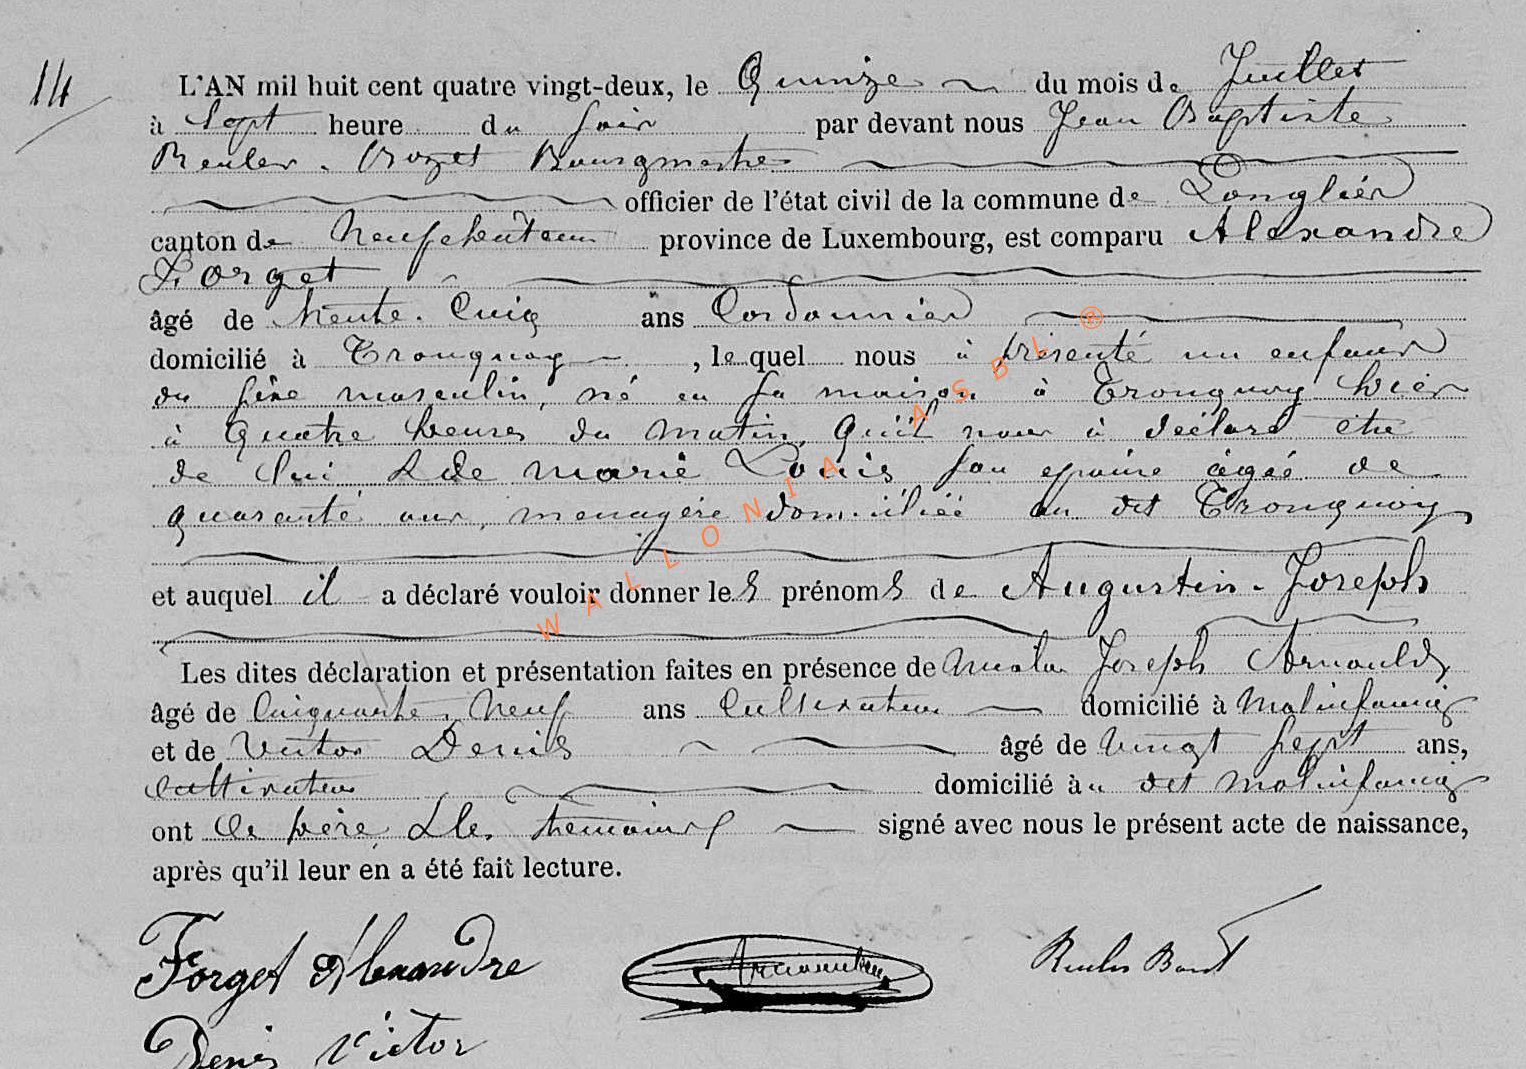 14
L'AN mil huit cent quatre vingt-deux, le Quinze du mois de Juillet
à Sept heure du soir par devant nous Jean Baptiste
Reuler Bourgmestre
officier de l'état civil de la commune de Longlier
canton de Neufchateau province de Luxembourg, est comparu Alexandre
Forget
âgé de trente-Cinq ans Cordonnier
domicilié à Tronquoy, lequel nous à présenté un enfant
du sexe masculin, né en sa maison à Tronquoy hier
à Quatre heures du matin, Qu'il nous à déclaré être
de lui & de marie Louis son épouse âgée de
quarante ans, menagère domiciliée au dit Tronquoy
et auquel il a déclaré vouloir donner les prénoms de Augustin-Joseph
Les dites déclaration et présentation faites en présence de Joseph Arnould
âgé de Cinquante-Neuf ans Cultivateur domicilié à Molinfaing
et de Victor Denis âgé de vingt sept ans,
Cultivateur domicilié au dit Molinfaing
ont le père & les témoins signé avec nous le présent acte de naissance,
après qu'il leur en a été fait lecture.
Forget Alexandre
Denis Victor
WALLONIA ASBL ®